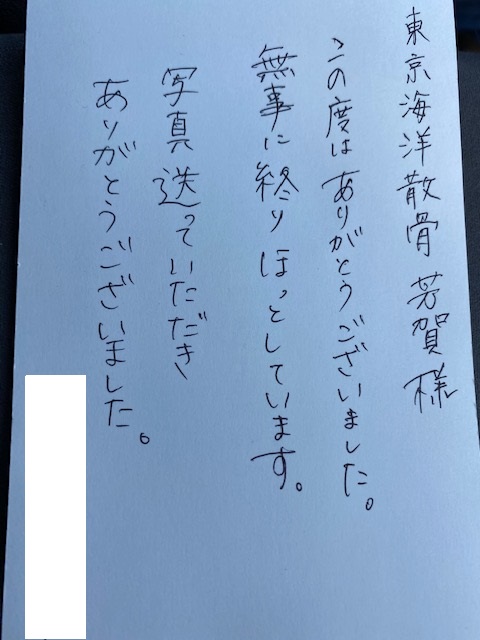 東京海洋散骨 芳賀様
この度は ありがとうございました。
無事に終り ほっとしています。
写真 送っていただき
ありがとうございました。